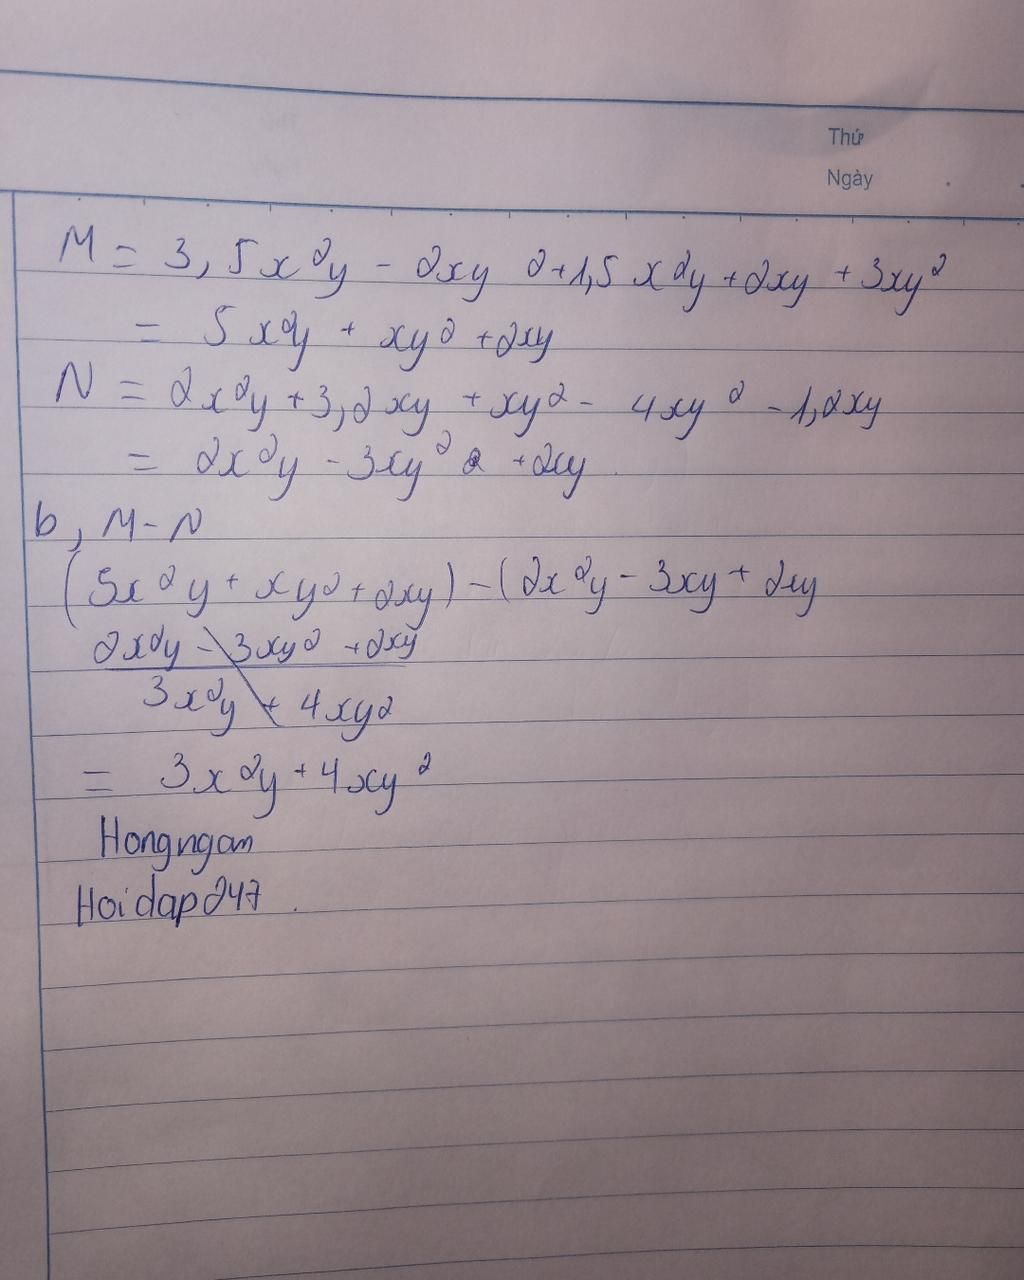 Thứ
Ngày
M = 3,5x²y - 2xy ² + 1,5 x²y + 2xy + 3xy²
= 5x²y + xy² + 2xy
N = 2x²y + 3,2xy + xy² - 4xy² - 1,2xy
= 2x²y - 3xy² + 2xy
b, M - N
(5x²y + xy² + 2xy) - (2x²y - 3xy + 2xy
2x²y - 3xy² + 2xy
3x²y + 4xy²
= 3x²y + 4xy²
Hongngam
Hoidap247